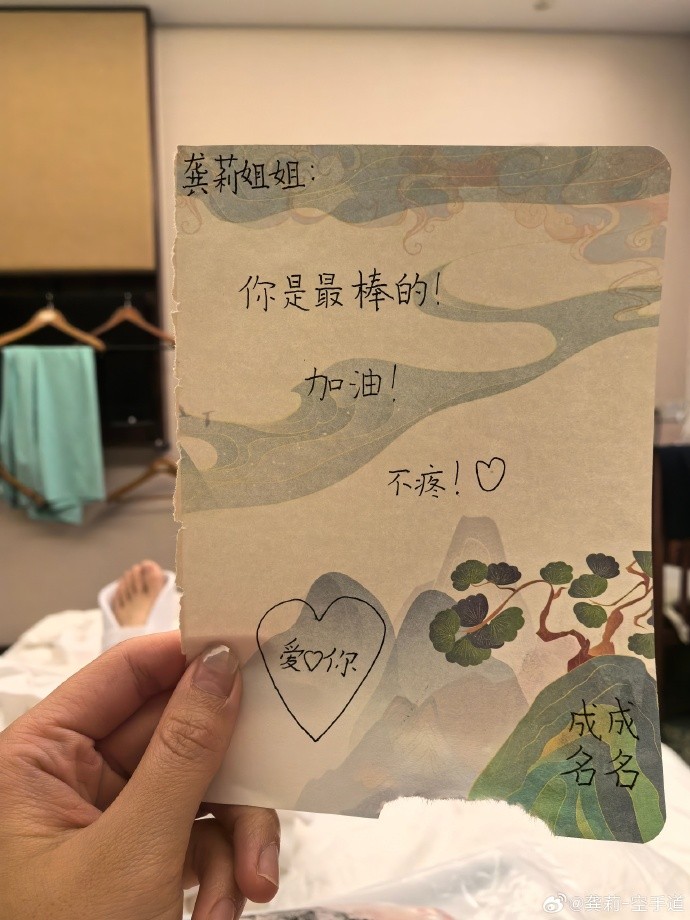 龚莉姐姐：
你是最棒的！
加油！
不疼！♡
爱♡你
成成
名名
@龚莉-空手道